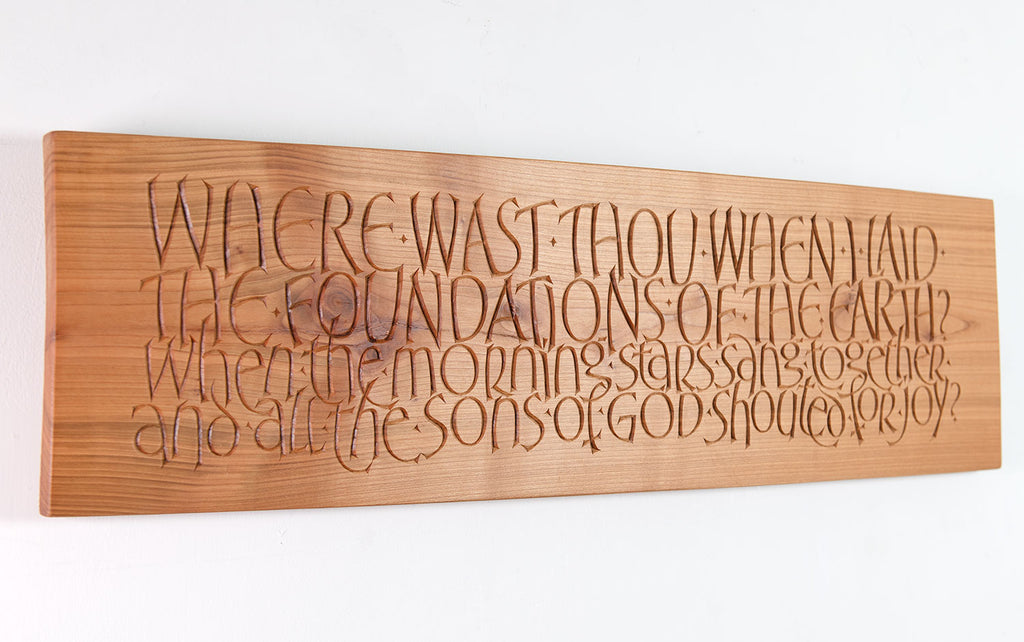 WHERE·WAST·THOU·WHEN·I·LAID·
THE·FOUNDATIONS·OF·THE·EARTH?
When·the·morning·stars·sang·together·
and·all·the·sons·of·GOD·shouted·for·joy?